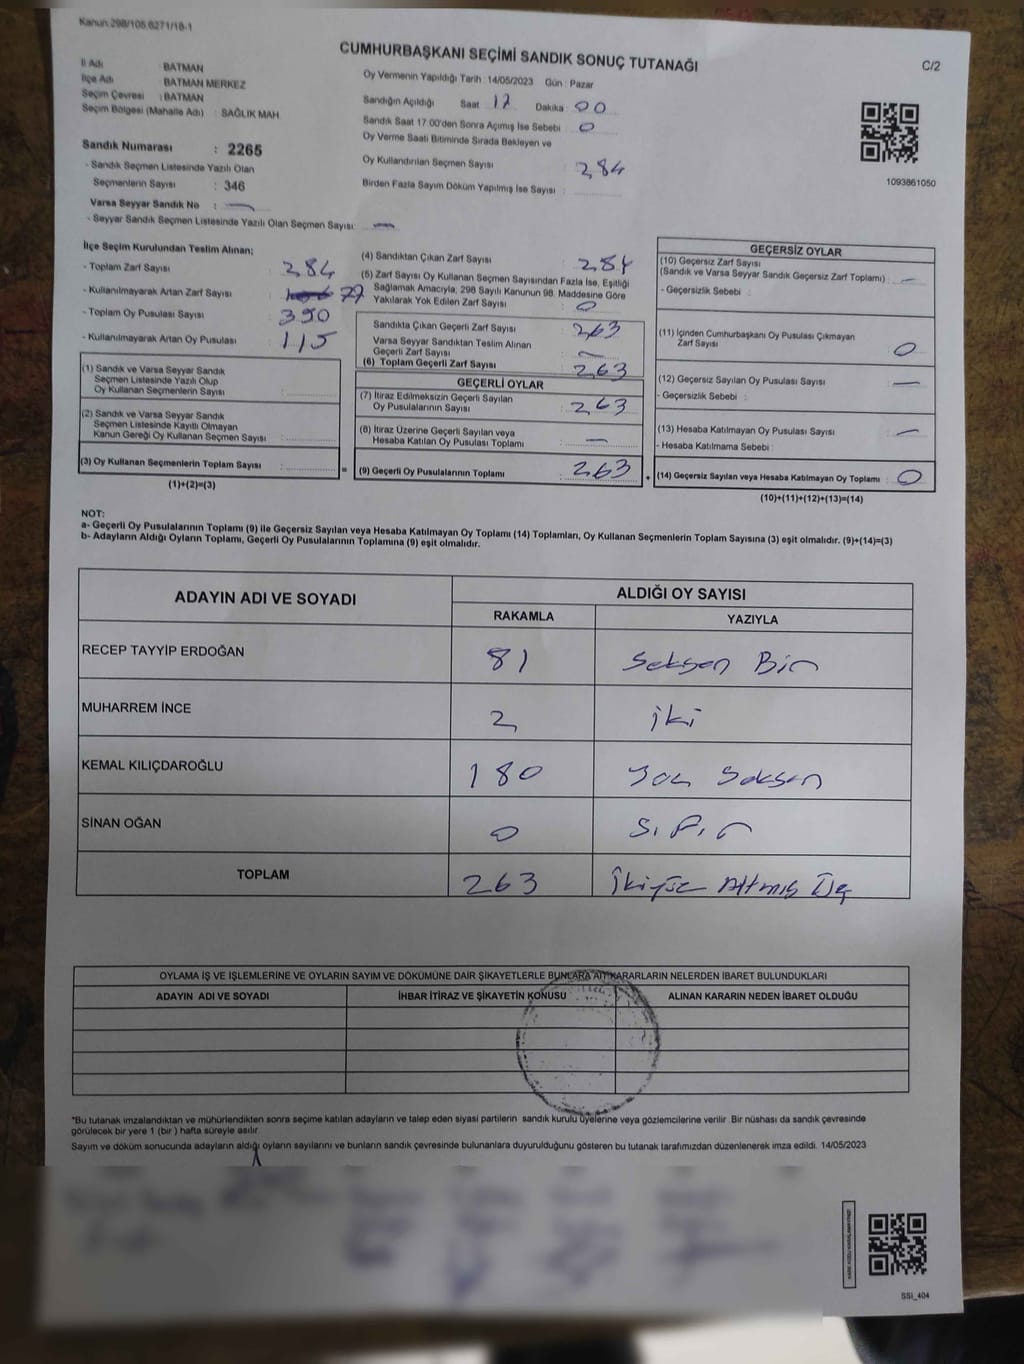 Kanun:298/105,6271/18-1
CUMHURBAŞKANI SEÇİMİ SANDIK SONUÇ TUTANAĞI
C/2
İl Adı : BATMAN
İlçe Adı : BATMAN MERKEZ
Seçim Çevresi : BATMAN
Seçim Bölgesi (Mahalle Adı) : SAĞLIK MAH
Sandık Numarası : 2265
- Sandık Seçmen Listesinde Yazılı Olan
Seçmenlerin Sayısı : 346
Varsa Seyyar Sandık No : —
- Seyyar Sandık Seçmen Listesinde Yazılı Olan Seçmen Sayısı: —
Oy Vermenin Yapıldığı Tarih : 14/05/2023 Gün : Pazar
Sandığın Açıldığı Saat 17 Dakika 00
Sandık Saat 17.00'den Sonra Açımış İse Sebebi : 0
Oy Verme Saati Bitiminde Sırada Bekleyen ve
Oy Kullandırılan Seçmen Sayısı : 284
Birden Fazla Sayım Döküm Yapılmış İse Sayısı :
1093861050
İlçe Seçim Kurulundan Teslim Alınan;
- Toplam Zarf Sayısı : 284
- Kullanılmayarak Artan Zarf Sayısı : 77
- Toplam Oy Pusulası Sayısı : 390
- Kullanılmayarak Artan Oy Pusulası : 115
(1) Sandık ve Varsa Seyyar Sandık
Seçmen Listesinde Yazılı Olup
Oy Kullanan Seçmenlerin Sayısı :
(2) Sandık ve Varsa Seyyar Sandık
Seçmen Listesinde Kayıtlı Olmayan
Kanun Gereği Oy Kullanan Seçmen Sayısı :
(3) Oy Kullanan Seçmenlerin Toplam Sayısı : =
(1)+(2)=(3)
(4) Sandıktan Çıkan Zarf Sayısı : 284
(5) Zarf Sayısı Oy Kullanan Seçmen Sayısından Fazla İse, Eşitliği
Sağlamak Amacıyla, 298 Sayılı Kanunun 98. Maddesine Göre
Yakılarak Yok Edilen Zarf Sayısı : 0
Sandıkta Çıkan Geçerli Zarf Sayısı : 263
Varsa Seyyar Sandıktan Teslim Alınan
Geçerli Zarf Sayısı : —
(6) Toplam Geçerli Zarf Sayısı : 263
GEÇERLİ OYLAR
(7) İtiraz Edilmeksizin Geçerli Sayılan
Oy Pusulalarının Sayısı : 263
(8) İtiraz Üzerine Geçerli Sayılan veya
Hesaba Katılan Oy Pusulası Toplamı : —
(9) Geçerli Oy Pusulalarının Toplamı : 263 +
GEÇERSİZ OYLAR
(10) Geçersiz Zarf Sayısı
(Sandık ve Varsa Seyyar Sandık Geçersiz Zarf Toplamı) : —
- Geçersizlik Sebebi :
(11) İçinden Cumhurbaşkanı Oy Pusulası Çıkmayan
Zarf Sayısı : 0
(12) Geçersiz Sayılan Oy Pusulası Sayısı : —
- Geçersizlik Sebebi :
(13) Hesaba Katılmayan Oy Pusulası Sayısı : —
- Hesaba Katılmama Sebebi :
(14) Geçersiz Sayılan veya Hesaba Katılmayan Oy Toplamı : 0
(10)+(11)+(12)+(13)=(14)
NOT:
a- Geçerli Oy Pusulalarının Toplamı (9) ile Geçersiz Sayılan veya Hesaba Katılmayan Oy Toplamı (14) Toplamları, Oy Kullanan Seçmenlerin Toplam Sayısına (3) eşit olmalıdır. (9)+(14)=(3)
b- Adayların Aldığı Oyların Toplamı, Geçerli Oy Pusulalarının Toplamına (9) eşit olmalıdır.
ADAYIN ADI VE SOYADI
ALDIĞI OY SAYISI
RAKAMLA YAZIYLA
RECEP TAYYİP ERDOĞAN 81 Seksen Bir
MUHARREM İNCE 2 iki
KEMAL KILIÇDAROĞLU 180 Yüz Seksen
SİNAN OĞAN 0 Sıfır
TOPLAM 263 İkiyüz Altmış Üç
OYLAMA İŞ VE İŞLEMLERİNE VE OYLARIN SAYIM VE DÖKÜMÜNE DAİR ŞİKAYETLERLE BUNLARA AİT KARARLARIN NELERDEN İBARET BULUNDUKLARI
ADAYIN ADI VE SOYADI İHBAR İTİRAZ VE ŞİKAYETİN KONUSU ALINAN KARARIN NEDEN İBARET OLDUĞU
*Bu tutanak imzalandıktan ve mühürlendikten sonra seçime katılan adayların ve talep eden siyasi partilerin sandık kurulu üyelerine veya gözlemcilerine verilir. Bir nüshası da sandık çevresinde
görülecek bir yere 1 (bir ) hafta süreyle asılır.
Sayım ve döküm sonucunda adayların aldığı oyların sayılarını ve bunların sandık çevresinde bulunanlara duyurulduğunu gösteren bu tutanak tarafımızdan düzenlenerek imza edildi. 14/05/2023
SSI_404